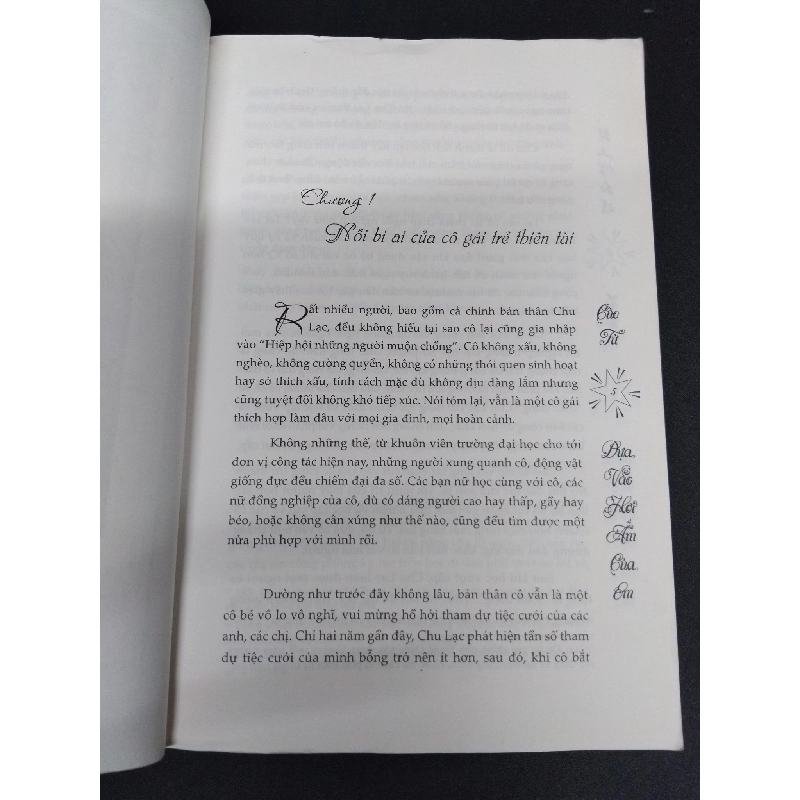 Chương 1
Nỗi bi ai của cô gái trẻ thiên tài
Rất nhiều người, bao gồm cả chính bản thân Chu
Lạc, đều không hiểu tại sao cô lại cũng gia nhập
vào “Hiệp hội những người muộn chồng”. Cô không xấu, không
nghèo, không cường quyền, không có những thói quen sinh hoạt
hay sở thích xấu, tính cách mặc dù không dịu dàng lắm nhưng
cũng tuyệt đối không khó tiếp xúc. Nói tóm lại, vẫn là một cô gái
thích hợp làm dâu với mọi gia đình, mọi hoàn cảnh.
Không những thế, từ khuôn viên trường đại học cho tới
đơn vị công tác hiện nay, những người xung quanh cô, động vật
giống đực đều chiếm đại đa số. Các bạn nữ học cùng với cô, các
nữ đồng nghiệp của cô, dù có dáng người cao hay thấp, gầy hay
béo, hoặc không cân xứng như thế nào, cũng đều tìm được một
nửa phù hợp với mình rồi.
Dường như trước đây không lâu, bản thân cô vẫn là một
cô bé vô lo vô nghĩ, vui mừng hồ hởi tham dự tiệc cưới của các
anh, các chị. Chỉ hai năm gần đây, Chu Lạc phát hiện tần số tham
dự tiệc cưới của mình bỗng trở nên ít hơn, sau đó, khi cô bắt
Cáo
Tử
5
Dựa
Vào
Hơi
Ấm
Của
Em